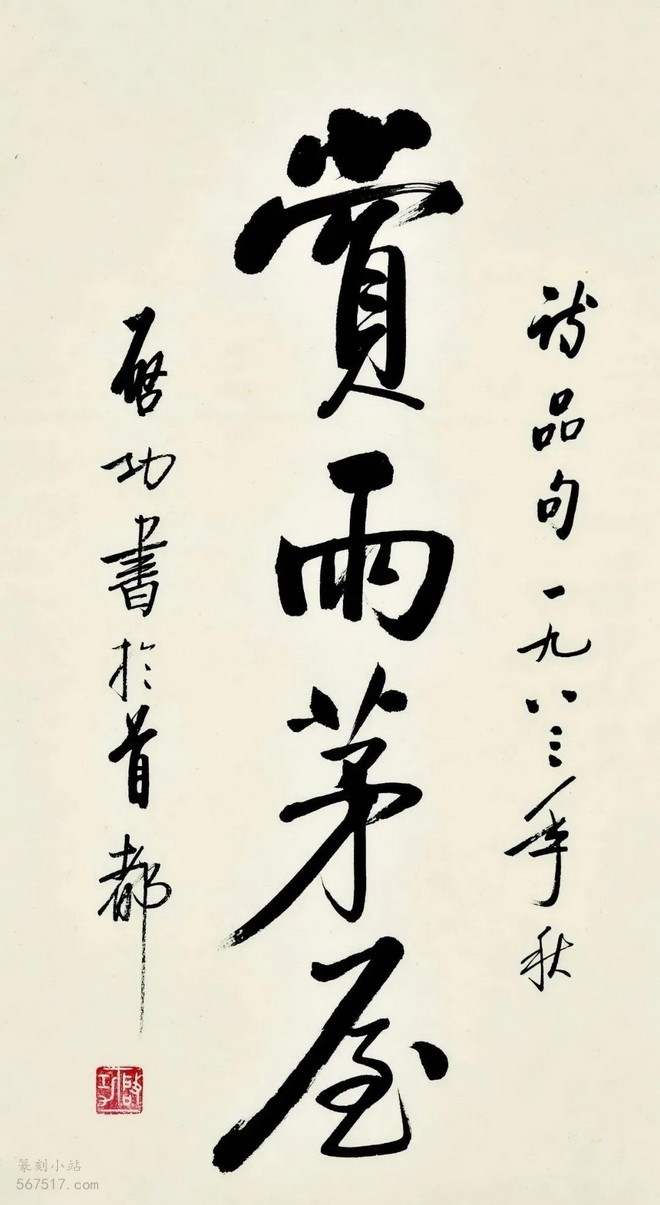 詩品句一九八三年秋
賞雨茅屋
啓功書於首都
啟功
篆刻小站
567517.com